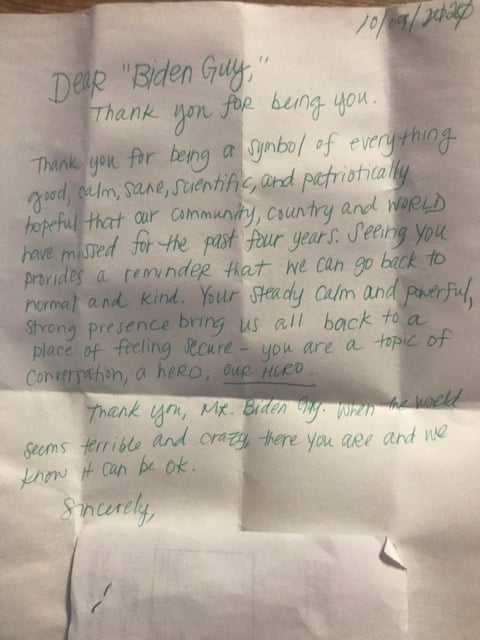 10/09/2020
Dear "Biden Guy,"
Thank you for being you.
Thank you for being a symbol of everything
good, calm, sane, scientific, and patriotically
hopeful that our community, country and WORLD
have missed for the past four years. Seeing you
provides a reminder that we can go back to
normal and kind. Your steady calm and powerful,
strong presence bring us all back to a
place of feeling secure - you are a topic of
conversation, a hero, OUR HERO.
Thank you, Mr. Biden Guy. When the world
seems terrible and crazy, there you are and we
know it can be ok.
Sincerely,